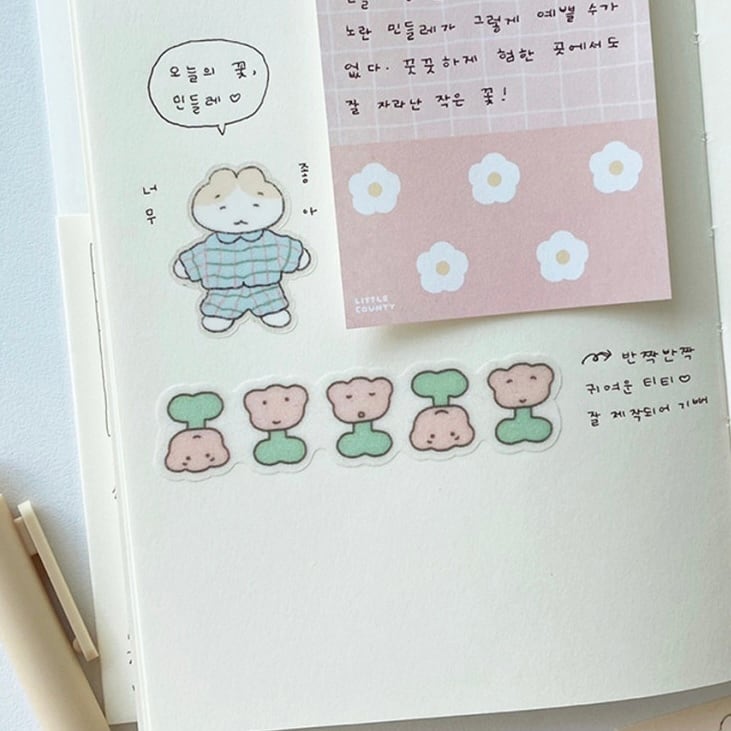 노란 민들레가 그렇게 예쁠 수가
없다. 꿋꿋하게 험한 곳에서도
잘 자라난 작은 꽃!
오늘의 꽃,
민들레 ♡
너무
좋아
LITTLE
COUNTY
반짝반짝
귀여운 티티 ♡
잘 제작되어 기뻐